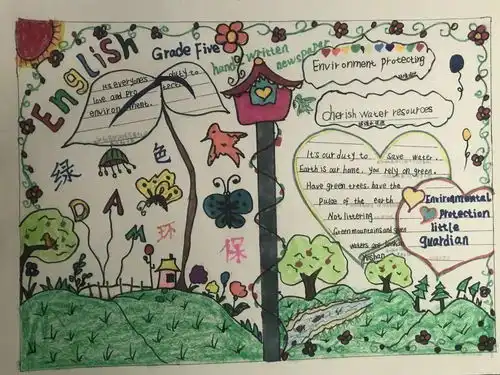 English
Grade Five
hand written
newspaper
It's everyone's duty to
love and protect
environment.
Environment protecting
Cherish water resources
绿
色
环
保
It's our duty to save water.
Earth is our home. You rely on green.
Have green trees, have the
Pulse of the earth
Not littering
Green mountains and green
waters are
Environmental
Protection
little
guardian